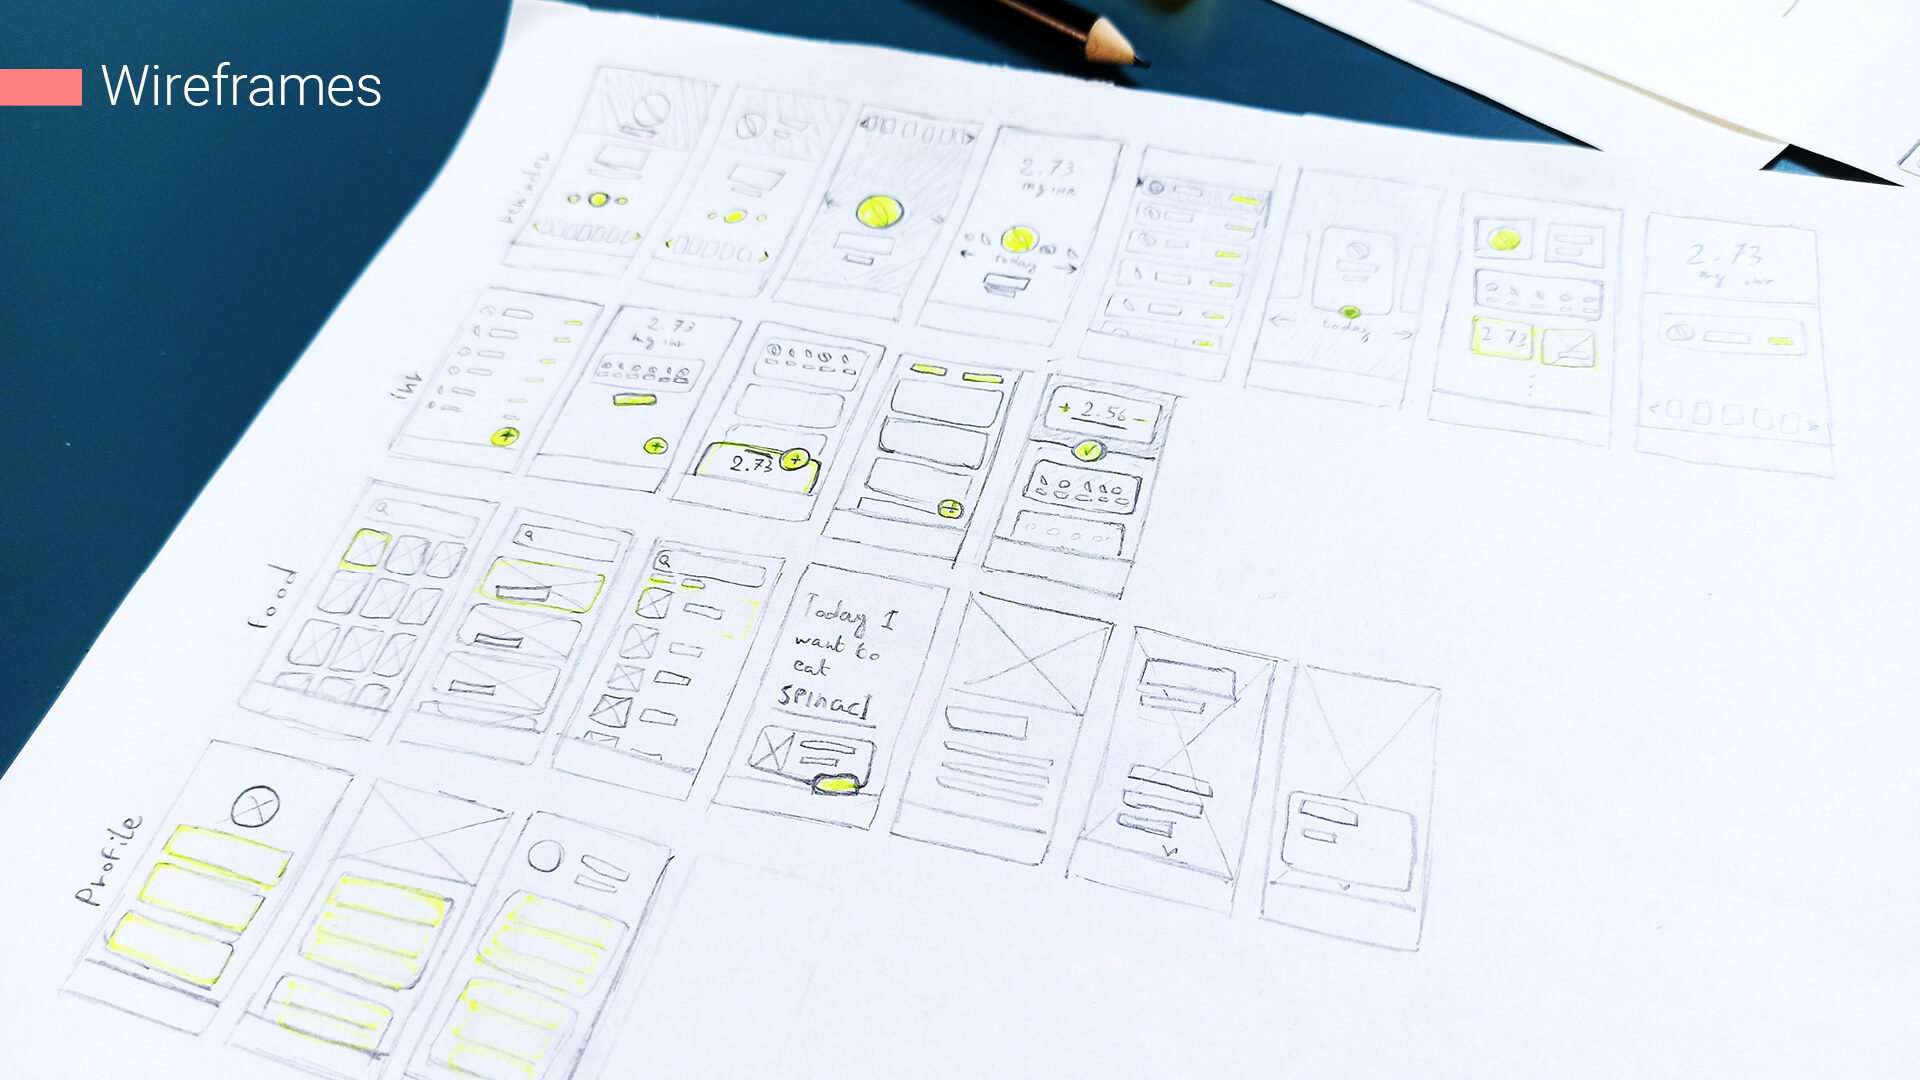 Wireframes
reminder
2.73
my inr
today
today
2.73
2.73
my inr
inr
2.73
my inr
2.73
+ 2.56 -
food
Today I
want to
eat
SPINACl
Profile